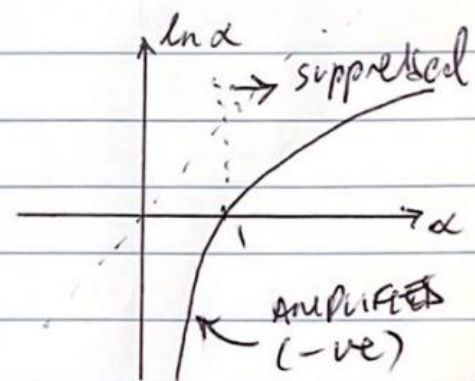 ln α
→ suppressed
1
α
AMPLIFIED
(-ve)